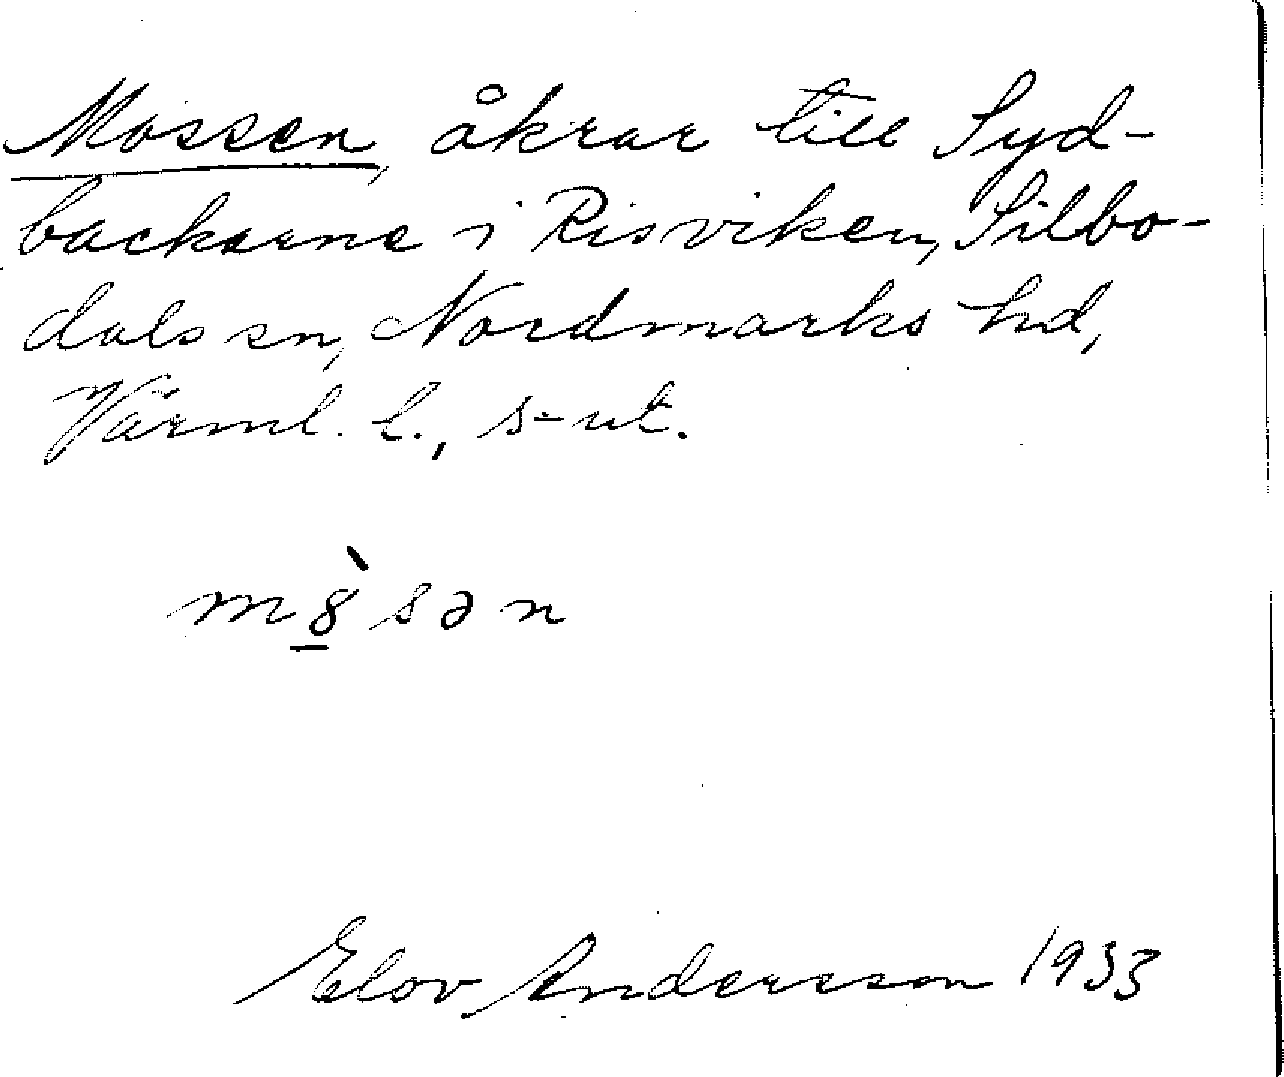 Mossen, åkrar till Syd-
backarne i Risviken, Silbo-
dals sn, Nordmarks hd,
Värml. l., s-ut.
m8̲̀sən
Elov Andersson 1933